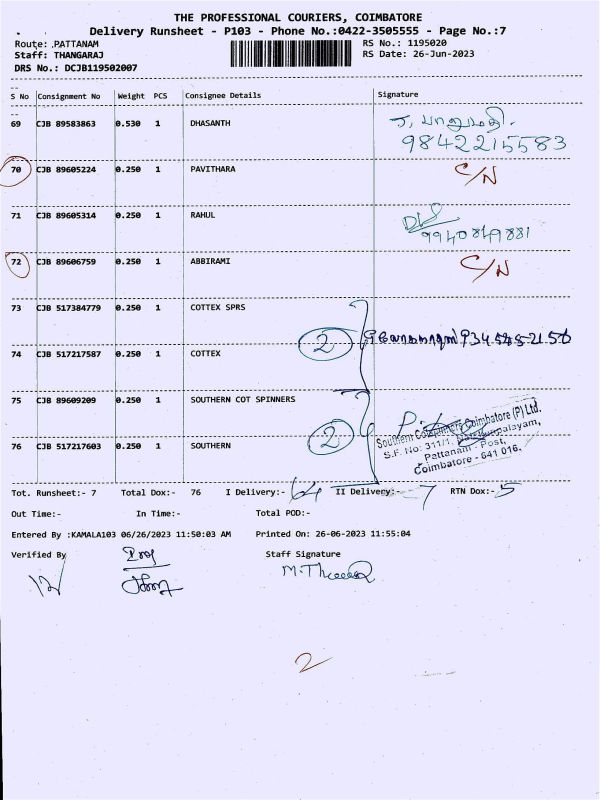 THE PROFESSIONAL COURIERS, COIMBATORE
Delivery Runsheet - P103 - Phone No.:0422-3505555 - Page No.:7
Route: PATTANAM RS No.: 1195020
Staff: THANGARAJ RS Date: 26-Jun-2023
DRS No.: DCJB119502007
S No Consignment No Weight PCS Consignee Details Signature
69 CJB 89583863 0.530 1 DHASANTH
9842215583
70 CJB 89605224 0.250 1 PAVITHARA C/N
71 CJB 89605314 0.250 1 RAHUL
9940849881
72 CJB 89606759 0.250 1 ABBIRAMI C/N
73 CJB 517384779 0.250 1 COTTEX SPRS
2
74 CJB 517217587 0.250 1 COTTEX
75 CJB 89609209 0.250 1 SOUTHERN COT SPINNERS
2
Southern Cotspinners Coimbatore (P) Ltd.
S.F. No: 311/1,
Pattanam - Post,
Coimbatore - 641 016.
76 CJB 517217603 0.250 1 SOUTHERN
Tot. Runsheet:- 7 Total Dox:- 76 I Delivery:- 64 II Delivery:- 7 RTN Dox:- 5
Out Time:- In Time:- Total POD:-
Entered By :KAMALA103 06/26/2023 11:50:03 AM Printed On: 26-06-2023 11:55:04
Verified By Staff Signature
2